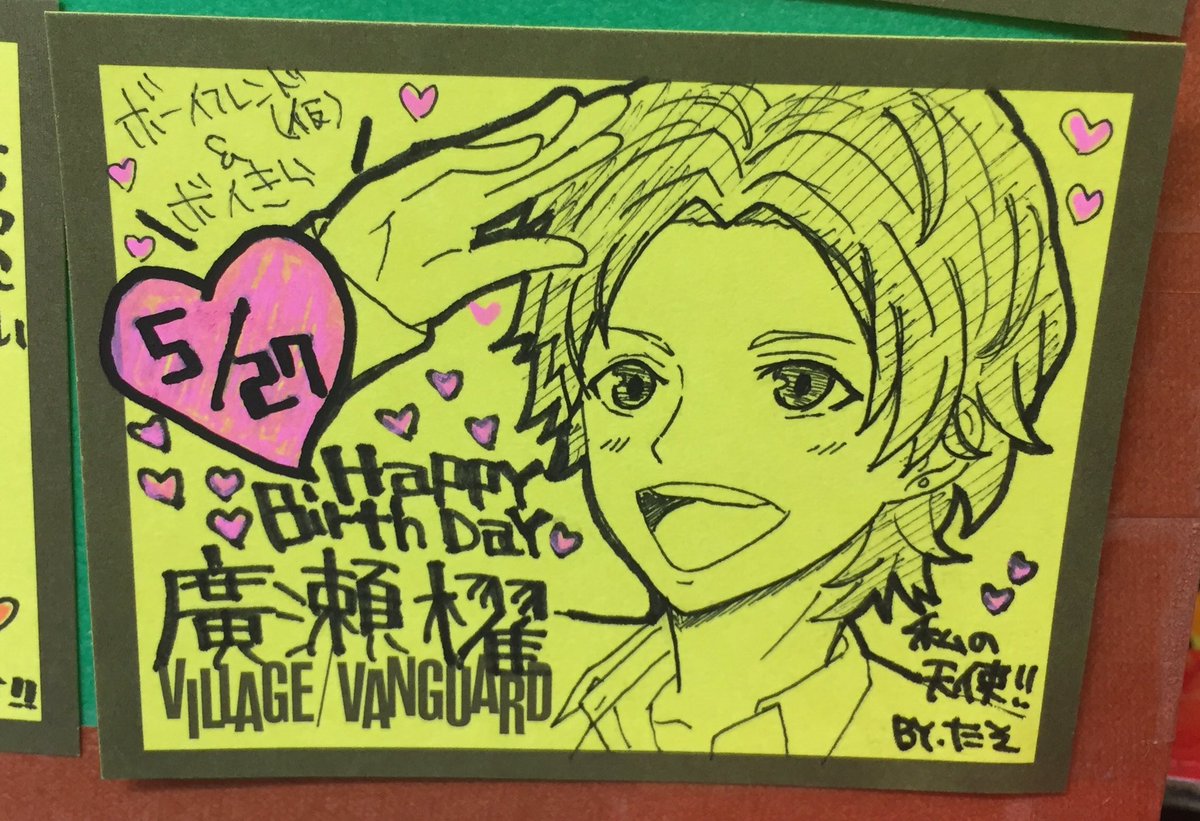 ボーイフレンド
(仮)
&
ボイきら
5/27
Happy
Birth Day
廣瀬櫂
VILLAGE/VANGUARD
私の
天使!!
BY.たそ
い
!!